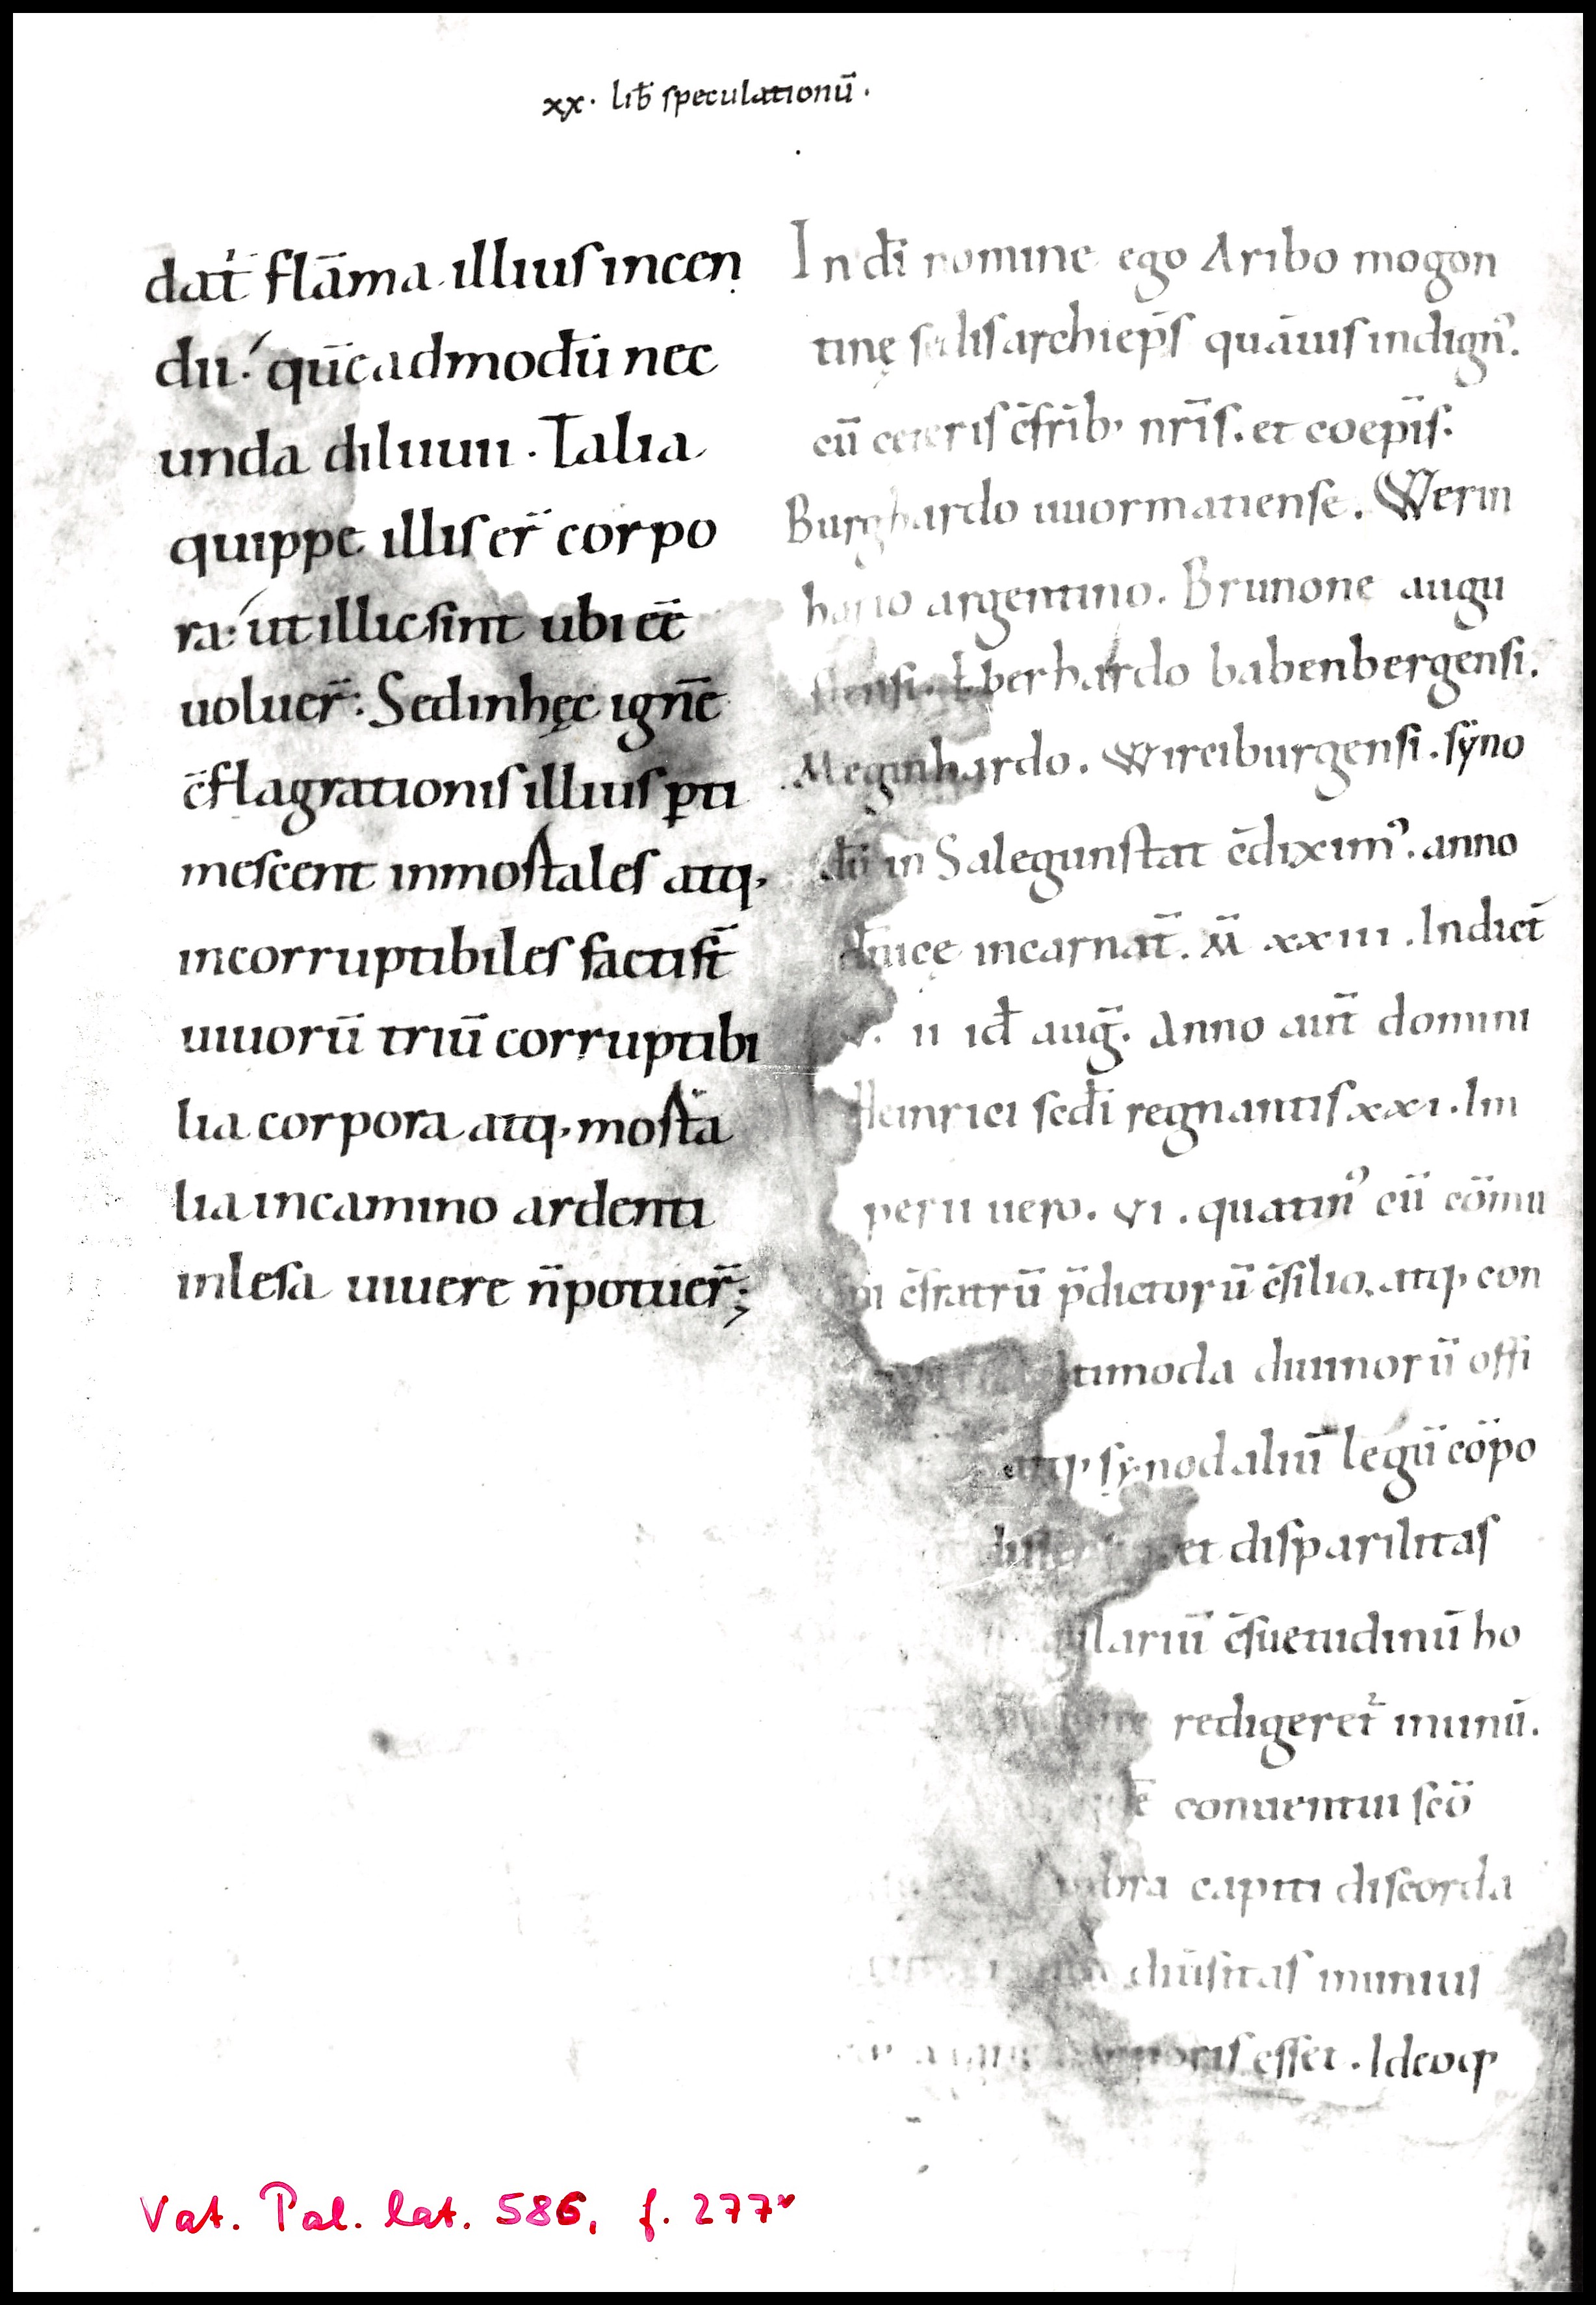 xx· lib̄ speculationū·
dat̄ flāma illius incen
dii· quēadmodū nec
unda diluuii· Talia
quippe illis er̄ corpo
ra· ut illic sint ubi eē
uoluer̄: Sed in hęc ignē
c̄flagrationis illius ꝑti
mescent inmortales atq·
incorruptibiles facti sn̄t
uiuorū triū corruptibi
lia corpora atq· mortā
lia in camino ardenti
inlesa uiuere n̄ potuer̄;
In dī nomine ego Aribo mogon
tinę sedis archiep̄s quāuis indign᾿.
cū ceteris c̄frīb· nr̄is. et coep̄is.
Burghardo uuormatiense. Werin
hario argentino. Brunone augu
stensi. Eberhardo babenbergensi.
Meginhardo. Wirciburgensi. sẏno
dū in Salegunstat c̄dixim᾿. anno
dn̄icę incarnat̄. M̄ xxiii. Indict̄
ii id̄ auḡ. Anno aut̄ domini
Heinrici scd̄i regnantis xxi. Im
perii uero. vi. quatin᾿ cū cōmu
ni c̄fratrū p̄dictorū c̄silio. atq· con
timoda diuinorū offi
atq· sẏnodaliū legū cōpo
et disparilitas
lariū c̄suetudinū ho
redigeret᾿ in unū.
conuentui scō
bra capiti discorda
diūsitas in unius
esset. Ideoq·
Vat. Pal. lat. 586, f. 277ᵛ